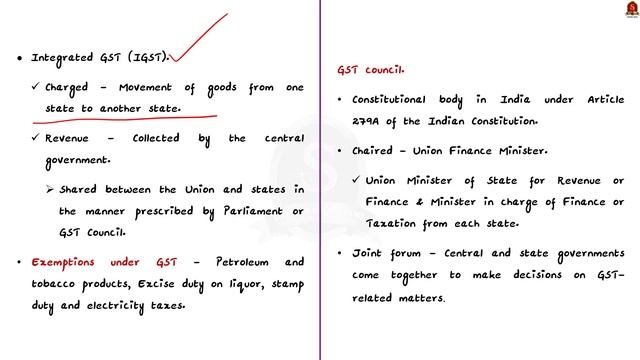 • Integrated GST (IGST).
✓ Charged – Movement of goods from one
state to another state.
✓ Revenue – Collected by the central
government.
➢ Shared between the Union and states in
the manner prescribed by Parliament or
GST Council.
• Exemptions under GST – Petroleum and
tobacco products, Excise duty on liquor, stamp
duty and electricity taxes.
GST council.
• Constitutional body in India under Article
279A of the Indian Constitution.
• Chaired – Union Finance Minister.
✓ Union Minister of State for Revenue or
Finance & Minister in charge of Finance or
Taxation from each state.
• Joint forum – Central and state governments
come together to make decisions on GST-
related matters.